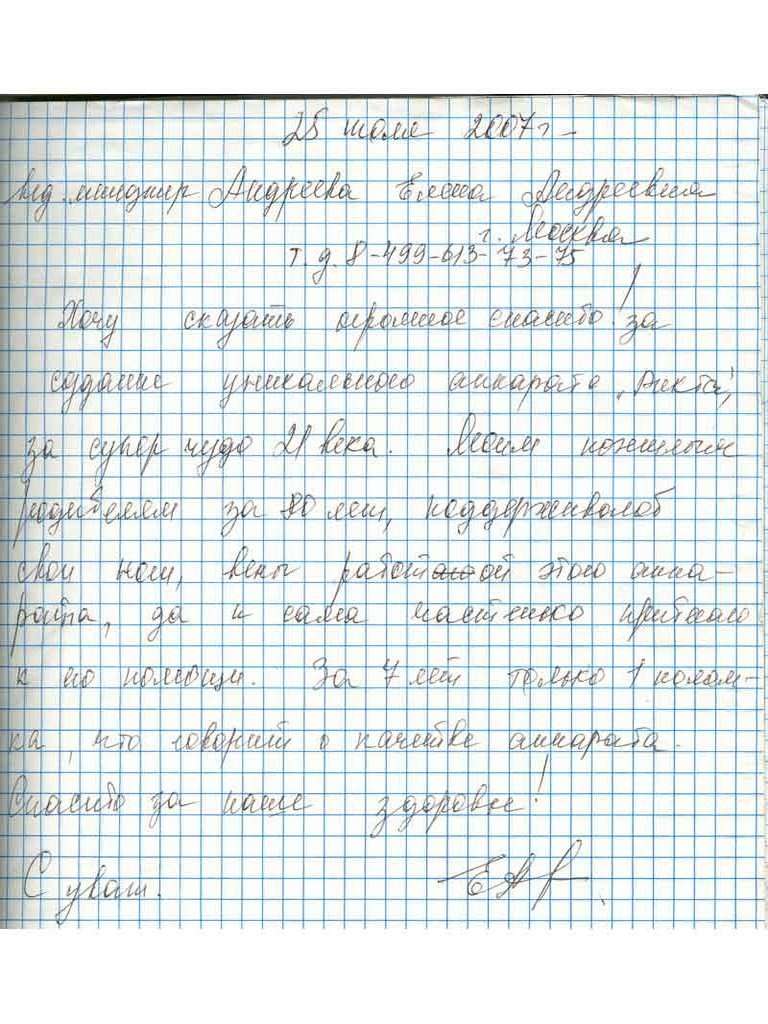 25 июля 2007 г
вед. менеджер Андреева Елена Андреевна
г. Москва
т. д. 8-499-613-73-75
Хочу сказать огромное спасибо! за
создание уникального аппарата „Рикта”,
за супер чудо 21 века. Моим пожилым
родителям за 80 лет,
свои ноги, вены работой этого аппа-
рата, да и сама частенько прибегаю
к его помощи. За 7 лет только 1 полом-
ка, что говорит о качестве аппарата.
Спасибо за наше здоровье!
С уваж.